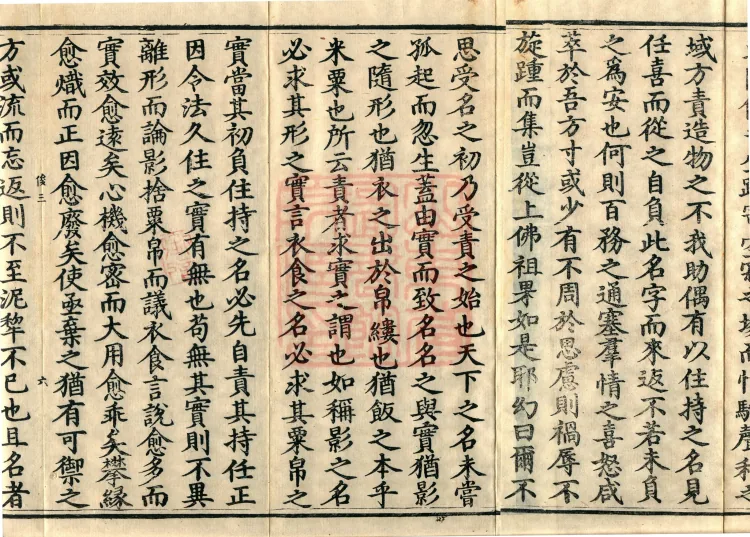 域方責造物之不我助偶有以住持之名見
任喜而從之自負此名字而來返不若未負
之爲安也何則百務之通塞羣情之喜怒咸
萃於吾方寸或少有不周於思慮則禍辱不
旋踵而集豈從上佛祖果如是耶幻曰爾不
思受名之初乃受責之始也天下之名未嘗
孤起而忽生蓋由實而致名名之與實猶影
之隨形也猶衣之出於帛縷也猶飯之本乎
米粟也所云責者求實之謂也如稱影之名
必求其形之實言衣食之名必求其粟帛之
實當其初負住持之名必先自責其持任正
因令法久住之實有無也苟無其實則不異
離形而論影捨粟帛而議衣食言說愈多而
實效愈遠矣心機愈密而大用愈乖矣攀緣
愈熾而正因愈廢矣使亟棄之猶有可禦之
俊三
六
方或流而忘返則不至泥犂不已也且名者